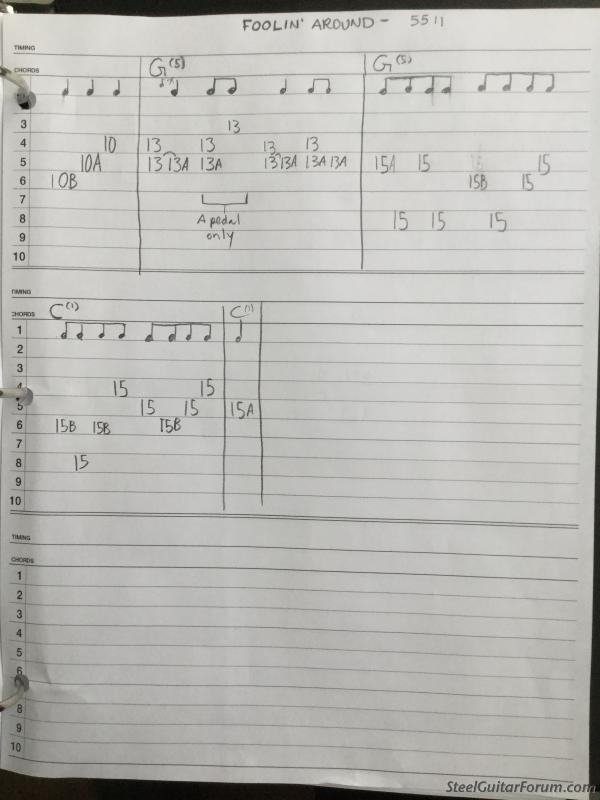 FOOLIN' AROUND - 5511
TIMING
CHORDS G(5) G(5)
3 13
4 10 13 13 13 13
5 10A 13 13A 13A 13 13A 13A 13A 15A 15 15
6 10B 15B 15
7
8 A pedal 15 15 15
9 only
10
TIMING
CHORDS C(1) C(1)
1
2
3
4 15 15
5 15 15 15A
6 15B 15B 15B
7
8 15
9
10
TIMING
CHORDS
1
2
3
4
5
6
8
9
10
SteelGuitarForum.com